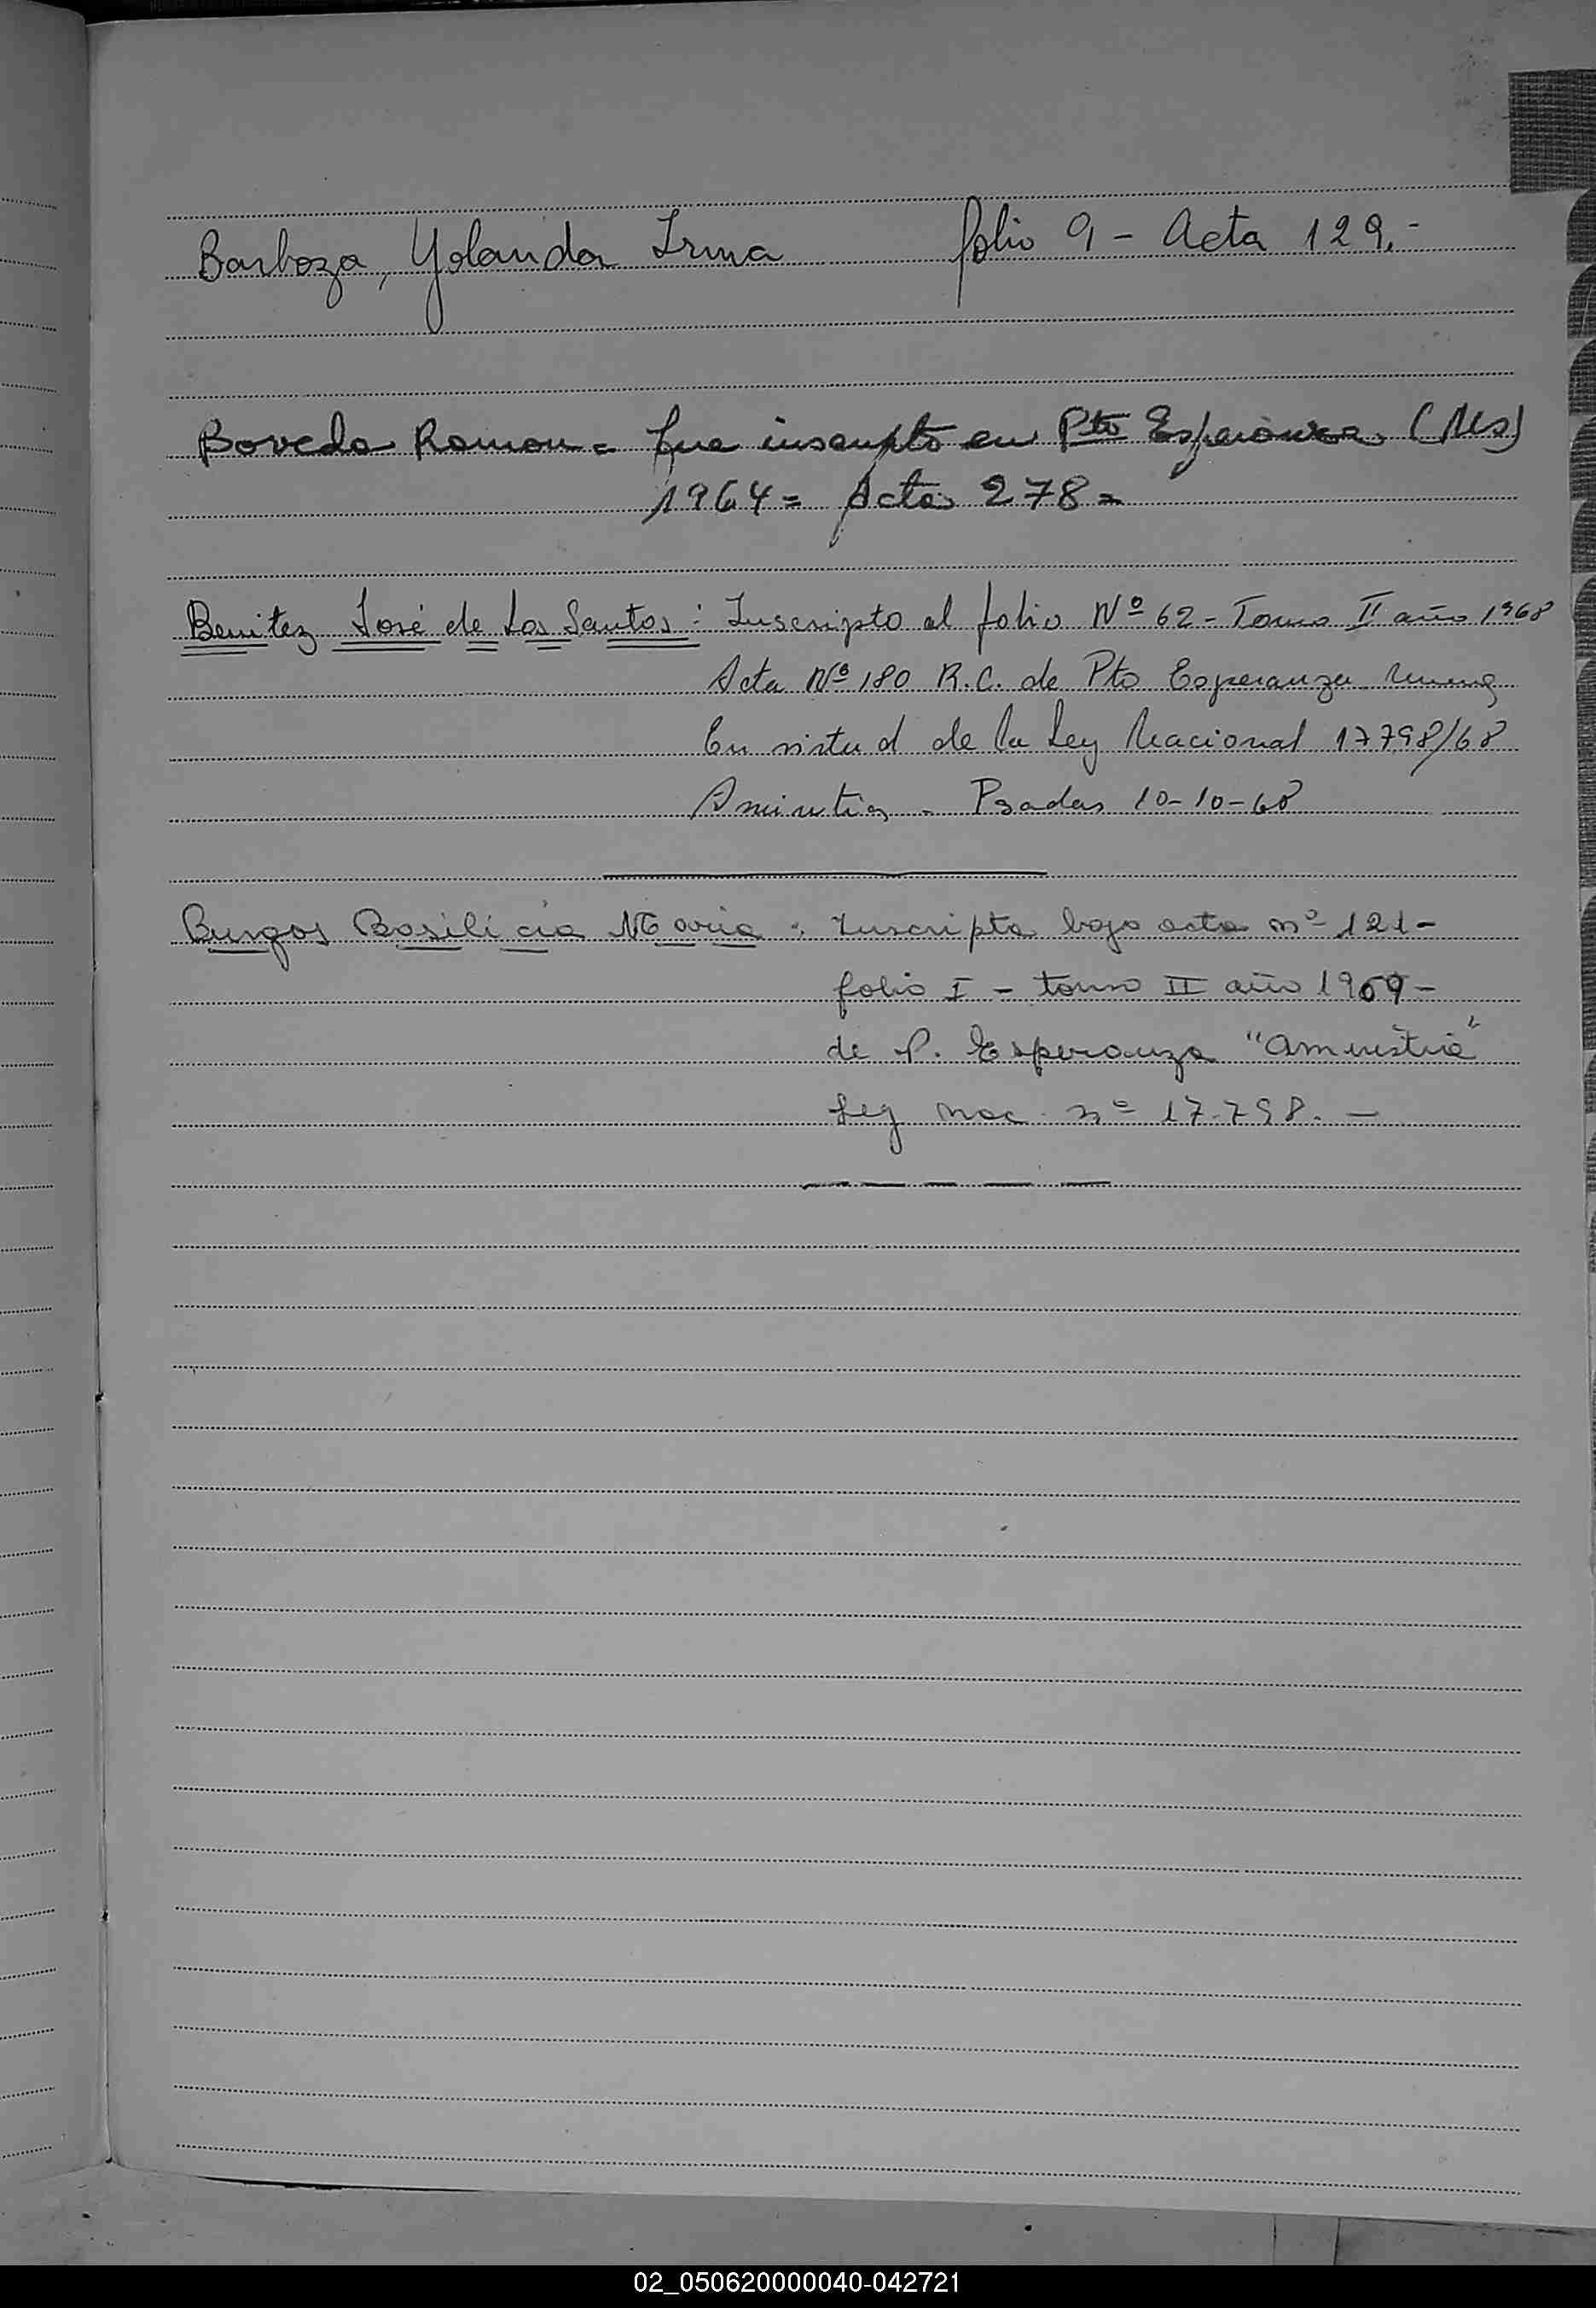 Barboza, Yolanda Irma folio 9 - Acta 129.-
Boveda Ramon = Fue inscripto en Pto Esperanza (Ms)
1964 = Acta 278 =
Benitez José de Los Santos : Inscripto al folio Nº 62 - Tomo II año 1968
Acta Nº 180 R.C. de Pto Esperanza
En virtud de la Ley Nacional 17798/68
Amnistia - Psadas 10-10-68
Burgos Basilicia Maria : Inscripta bajo acta nº 121 -
folio I - tomo II año 1969 -
de P. Esperanza "amnistia"
Ley nac. nº 17.798. -
02_050620000040-042721